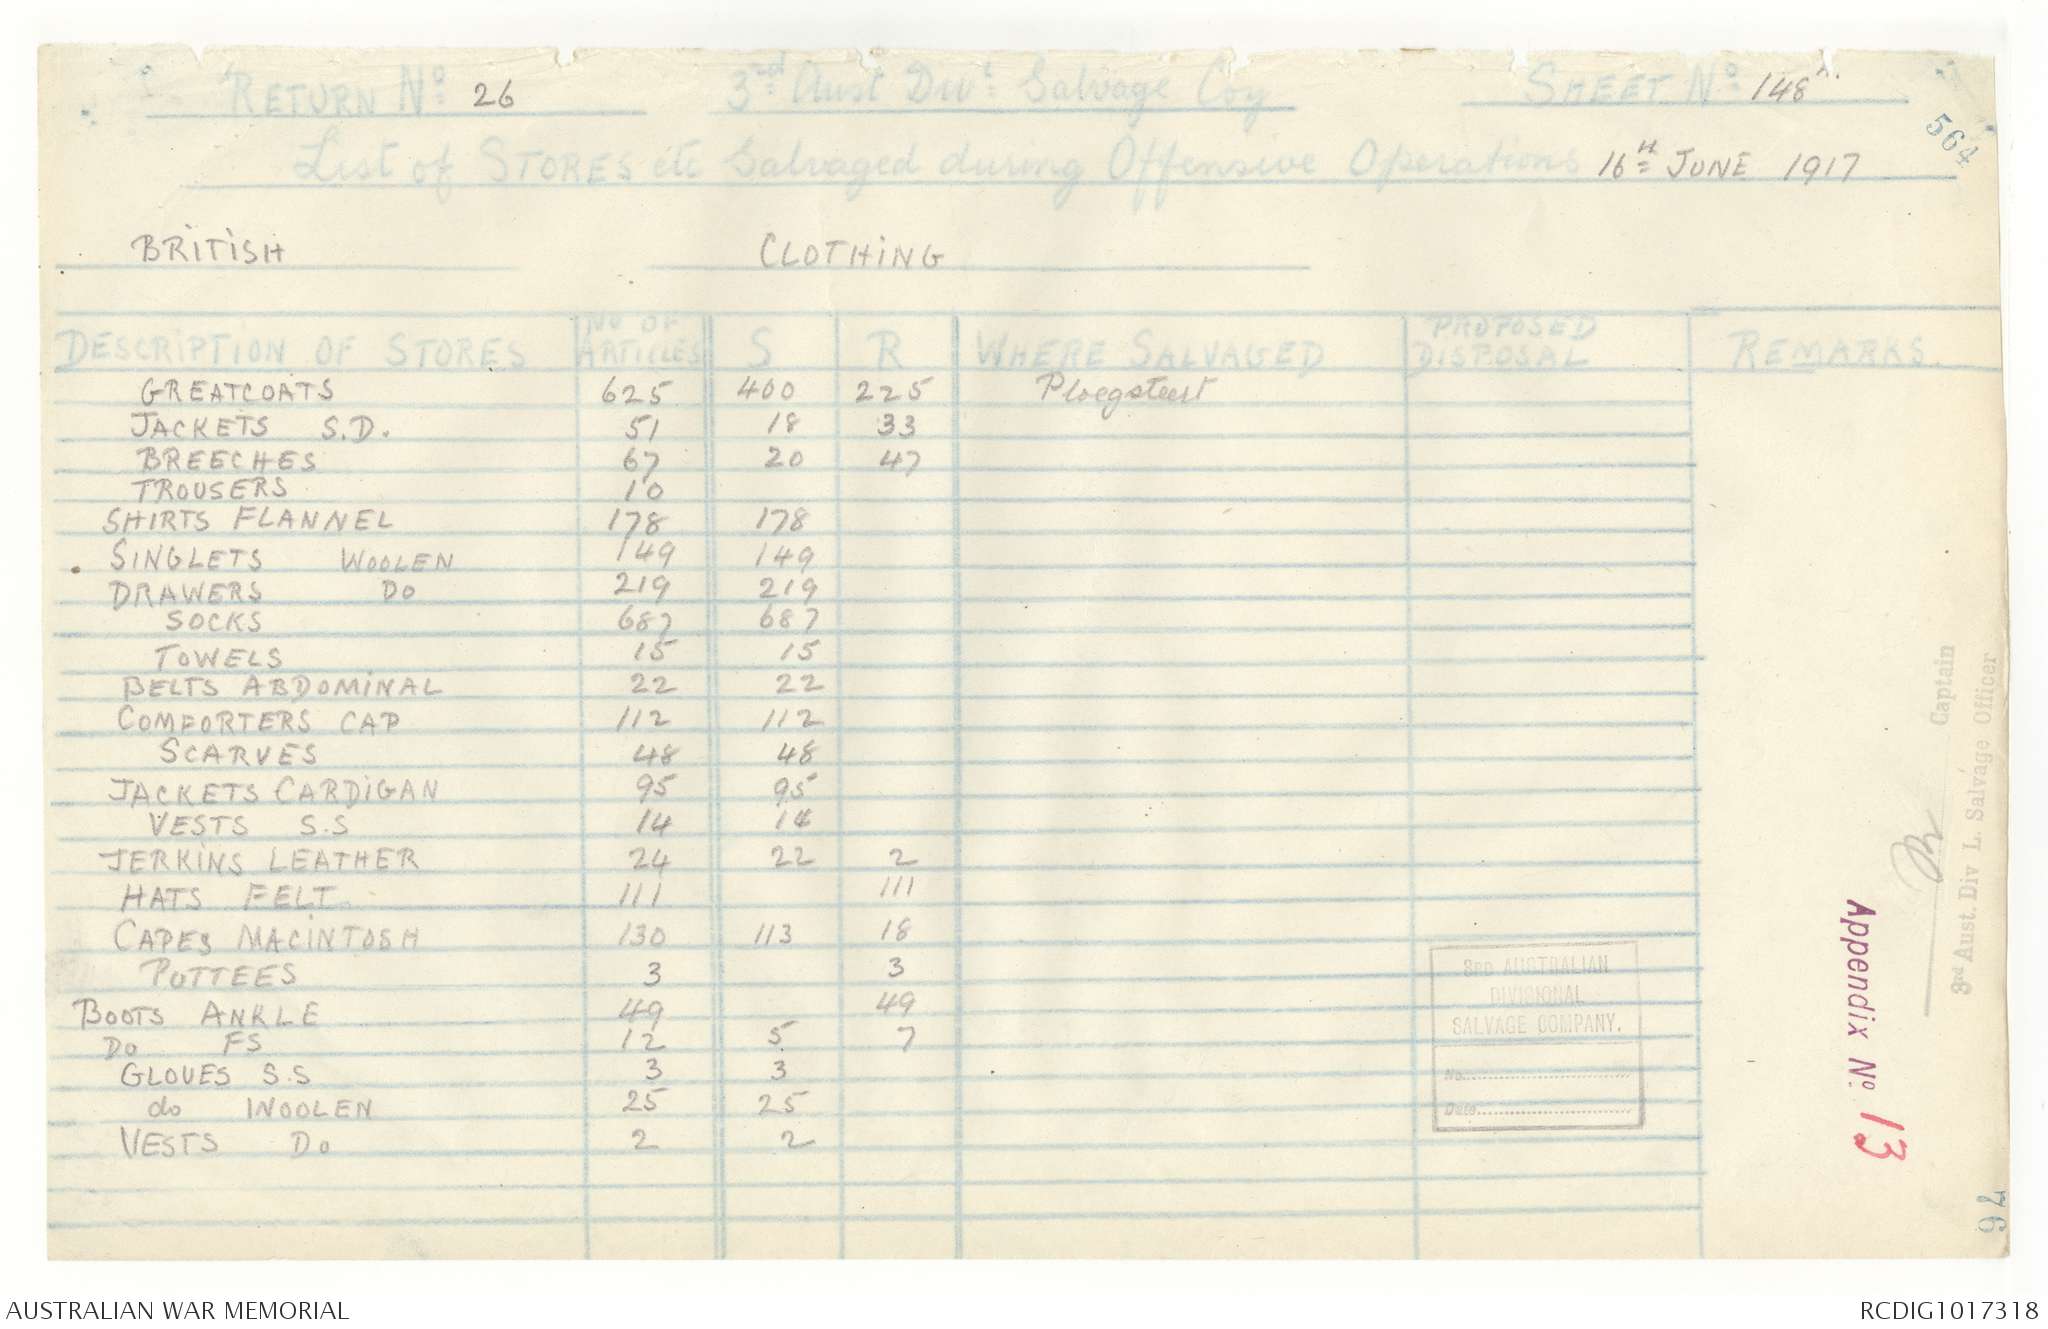 RETURN No 26 3rd Aust Divl Salvage Coy SHEET No 148A.
564
List of STORES etc Salvaged during Offensive Operations 16TH JUNE 1917
BRITISH CLOTHING
DESCRIPTION OF STORES No OF ARTICLES S R WHERE SALVAGED PROPOSED DISPOSAL REMARKS
GREATCOATS 625 400 225 Ploegsteert
JACKETS S.D. 51 18 33
BREECHES 67 20 47
TROUSERS 10
SHIRTS FLANNEL 178 178
SINGLETS WOOLEN 149 149
DRAWERS Do 219 219
SOCKS 687 687
TOWELS 15 15
BELTS ABDOMINAL 22 22
COMFORTERS CAP 112 112
SCARVES 48 48
JACKETS CARDIGAN 95 95
VESTS S.S 14 14
JERKINS LEATHER 24 22 2
HATS FELT 111 111
CAPES MACINTOSH 130 113 18
PUTTEES 3 3
BOOTS ANKLE 49 49
Do FS 12 5 7
GLOVES S.S 3 3
do WOOLEN 25 25
VESTS Do 2 2
3RD AUSTRALIAN
DIVISIONAL
SALVAGE COMPANY.
No.
Date
Captain
3rd Aust. Div L. Salvage Officer
Appendix No. 13
76
AUSTRALIAN WAR MEMORIAL RCDIG1017318